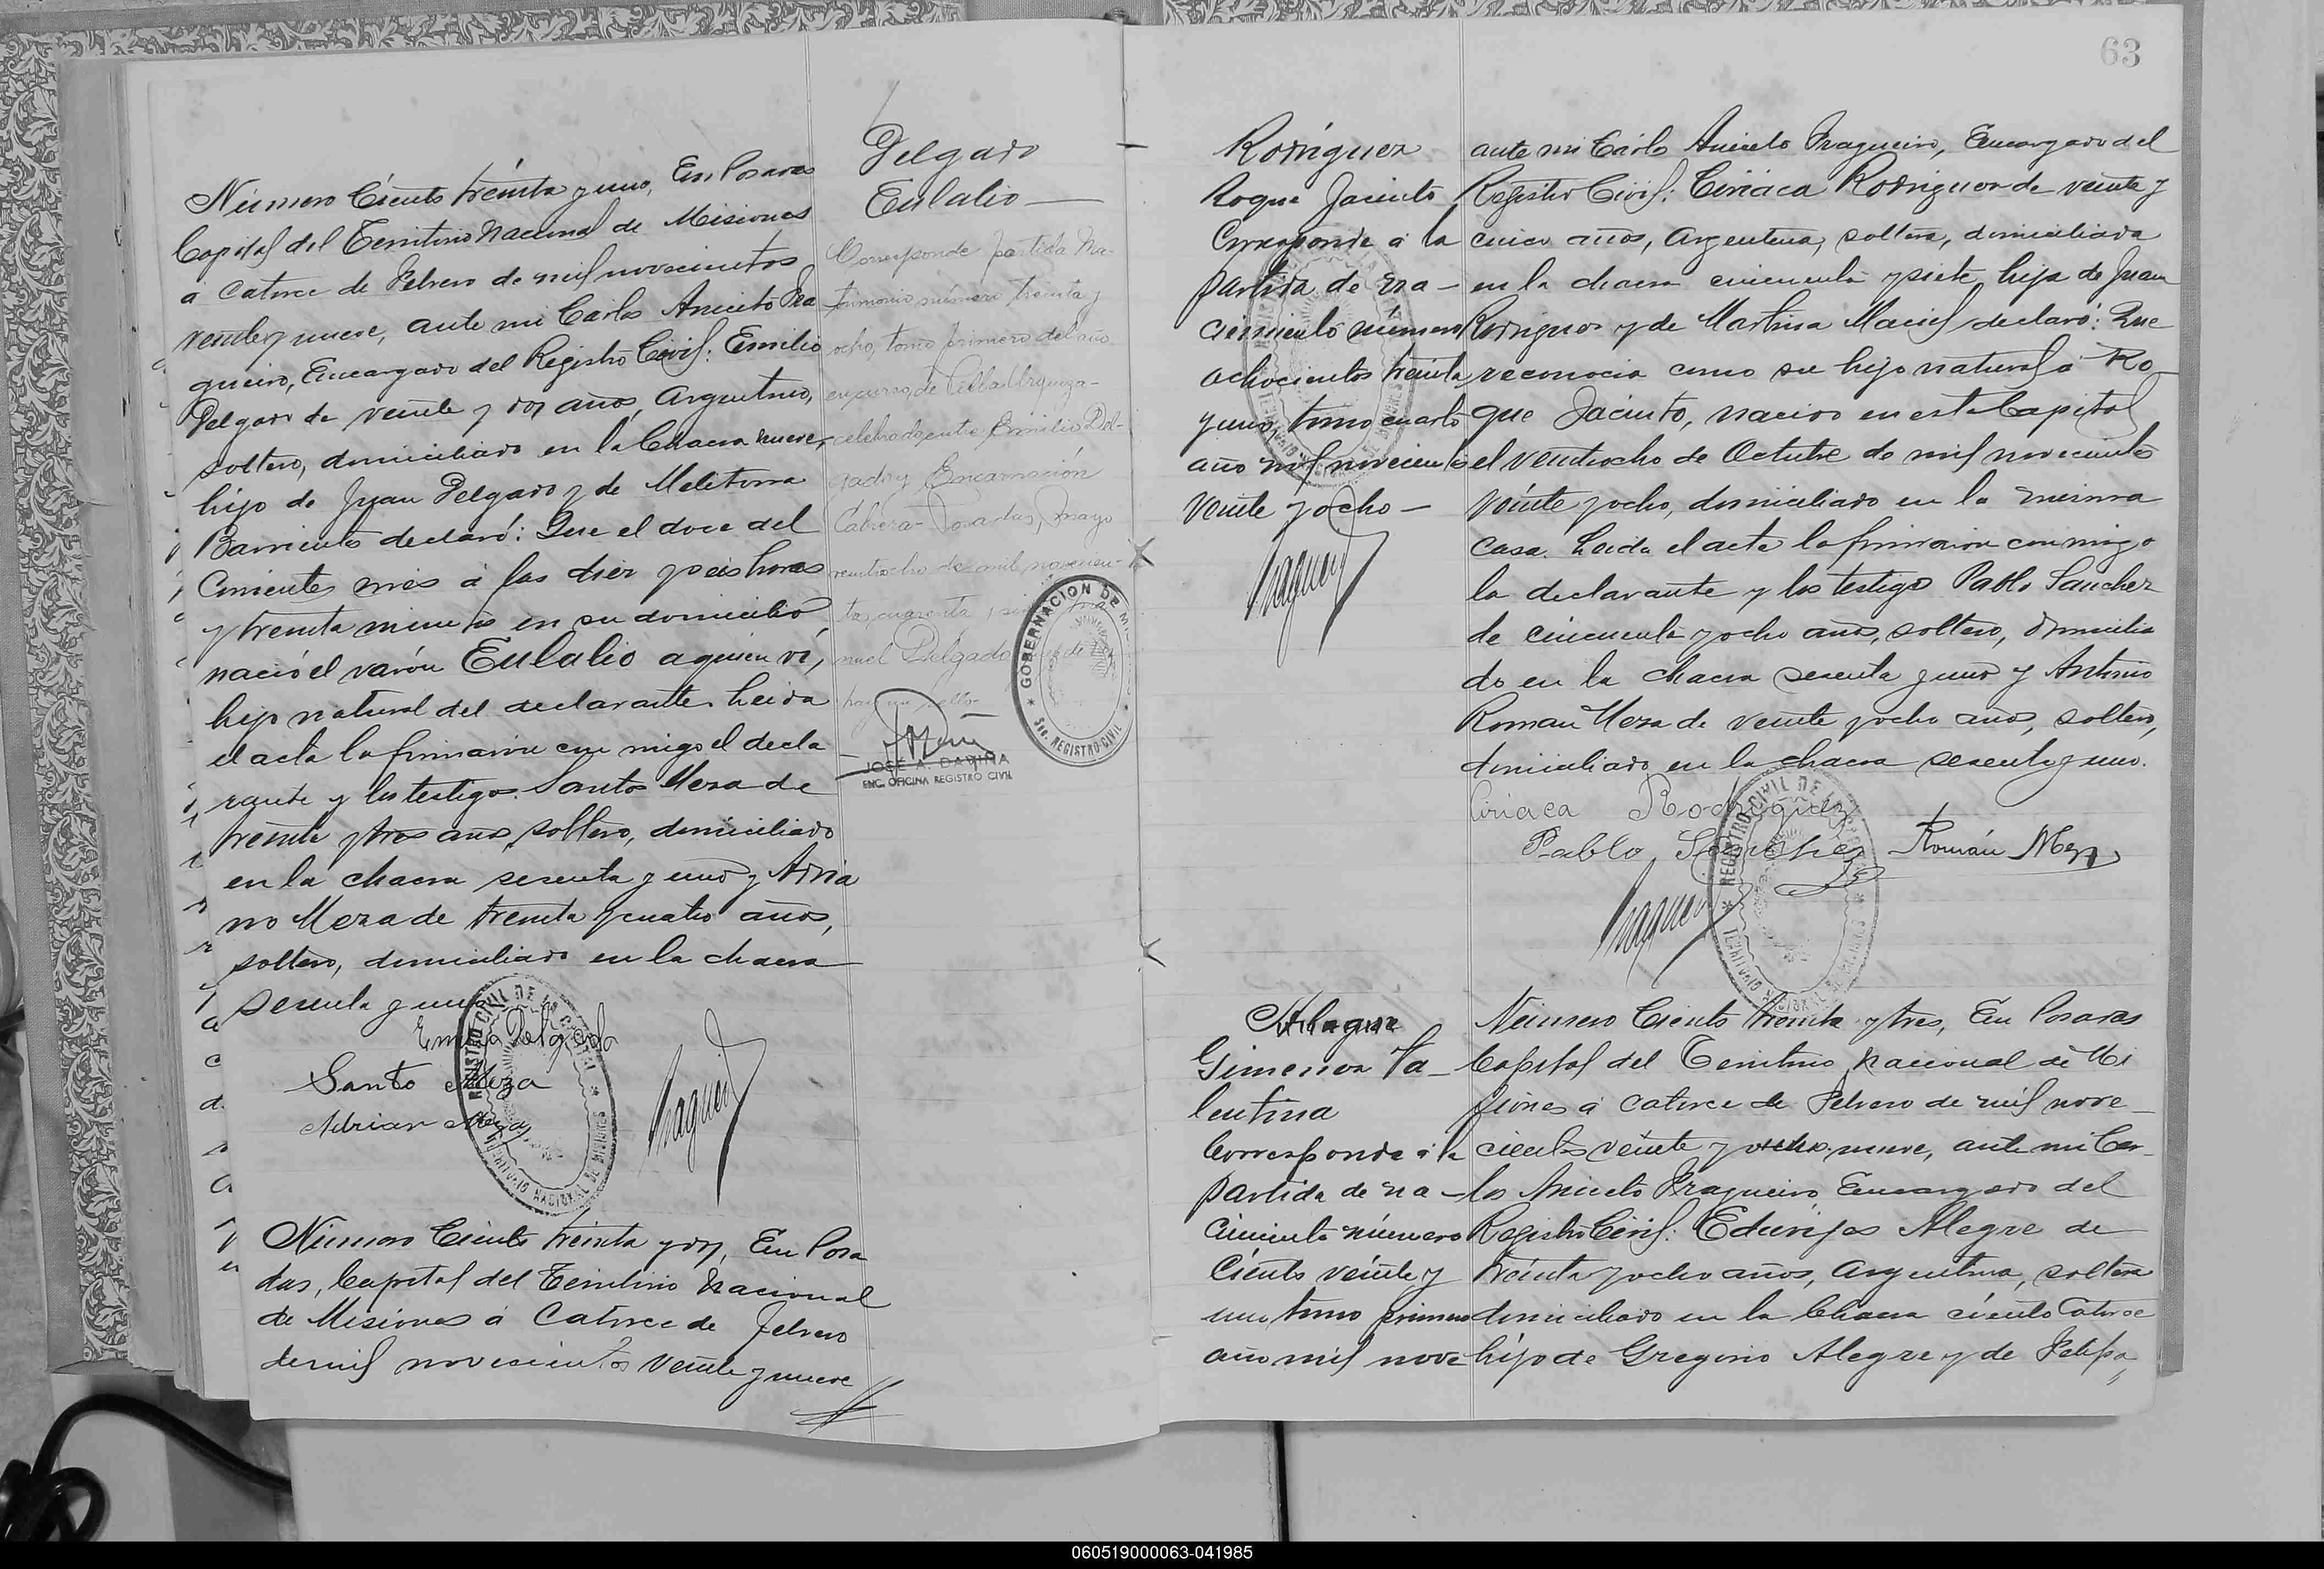 63
Número Ciento treinta y uno, En Posadas
Capital del Territorio Nacional de Misiones
á catorce de Febrero de mil novecientos
veinte y nueve, ante mi Carlos Aniceto Fra
gueiro, Encargado del Registro Civil: Emilio
Delgado de veinte y dos años, Argentino,
soltero, domiciliado en la Chacra nueve,
hijo de Juan Delgado y de Melitona
Barrientos declaró: Que el doce del
Corriente mes á las diez y seis horas
y treinta minutos en su domicilio
nació el varón Eulalio a quien ví,
hijo natural del declarante. Leida
el acta la firmaron con migo el decla
rante y los testigos. Santos Meza de
treinta y tres años, soltero, domiciliado
en la chacra sesenta y uno y Adria
no Meza de treinta y cuatro años,
soltero, domiciliado en la chacra
sesenta y uno
Emilio Delgado
Santo Meza
Adrian Meza
Fragueiro
REGISTRO CIVIL DE LA CAPITAL
TERRITORIO NACIONAL DE MISIONES
Delgado
Eulalio
Corresponde partida Ma-
trimonio número treinta y
ocho, tomo primero del año
en curso, de Villa Urquiza-
celebrado entre Emilio Del-
gado y Encarnación
Cabrera- Posadas, mayo
veintiocho de mil novecien-
tos cuarenta y
Delgado
hay un sello-
JOSÉ A. DARIÑA
ENC. OFICINA REGISTRO CIVIL
GOBERNACION DE MI
REGISTRO CIVIL
Número Ciento treinta y dos, En Posa
das, Capital del Territorio Nacional
de Misiones á Catorce de Febrero
de mil novecientos veinte y nueve
Rodríguez
Roque Jacinto
Corresponde á la
partida de na-
cimiento número
ochocientos treinta
y uno, tomo cuarto
año mil novecientos
veinte y ocho-
Fragueiro
ante mi Carlos Aniceto Fragueiro, Encargado del
Registro Civil: Ciriaca Rodriguez de veinte y
cinco años, Argentina, soltera, domiciliada
en la chacra cincuenta y siete hija de Juan
Rodriguez y de Martina Maciel declaró: Que
reconocia como su hijo natural á Ro-
que Jacinto, nacido en esta Capital
el veintiocho de Octubre de mil novecientos
veinte y ocho, domiciliado en la misma
casa. Leida el acta la firmaron con migo
la declarante y los testigos Pablo Sanchez
de cincuenta y ocho años, soltero, domicilia
do en la chacra sesenta y uno y Antonio
Roman Meza de veinte y ocho años, soltero,
domiciliado en la chacra sesenta y uno.
Ciriaca Rodriguez
Pablo Sanchez Román Meza
Fragueiro
REGISTRO CIVIL DE LA CAPITAL
TERRITORIO NACIONAL DE MISIONES
Gimenez Va-
lentina
Corresponde á la
partida de na-
cimiento número
Ciento veinte y
uno tomo primero
año mil nove
Número Ciento treinta y tres, En Posadas
Capital del Territorio Nacional de Mi
siones á catorce de Febrero de mil nove-
cientos veinte y ocho nueve, ante mi Car-
los Aniceto Fragueiro Encargado del
Registro Civil: Eduvijes Alegre de
treinta y ocho años, Argentina, soltera
domiciliado en la Chacra ciento catorce
hijo de Gregorio Alegre y de Felipa,
060519000063-041985